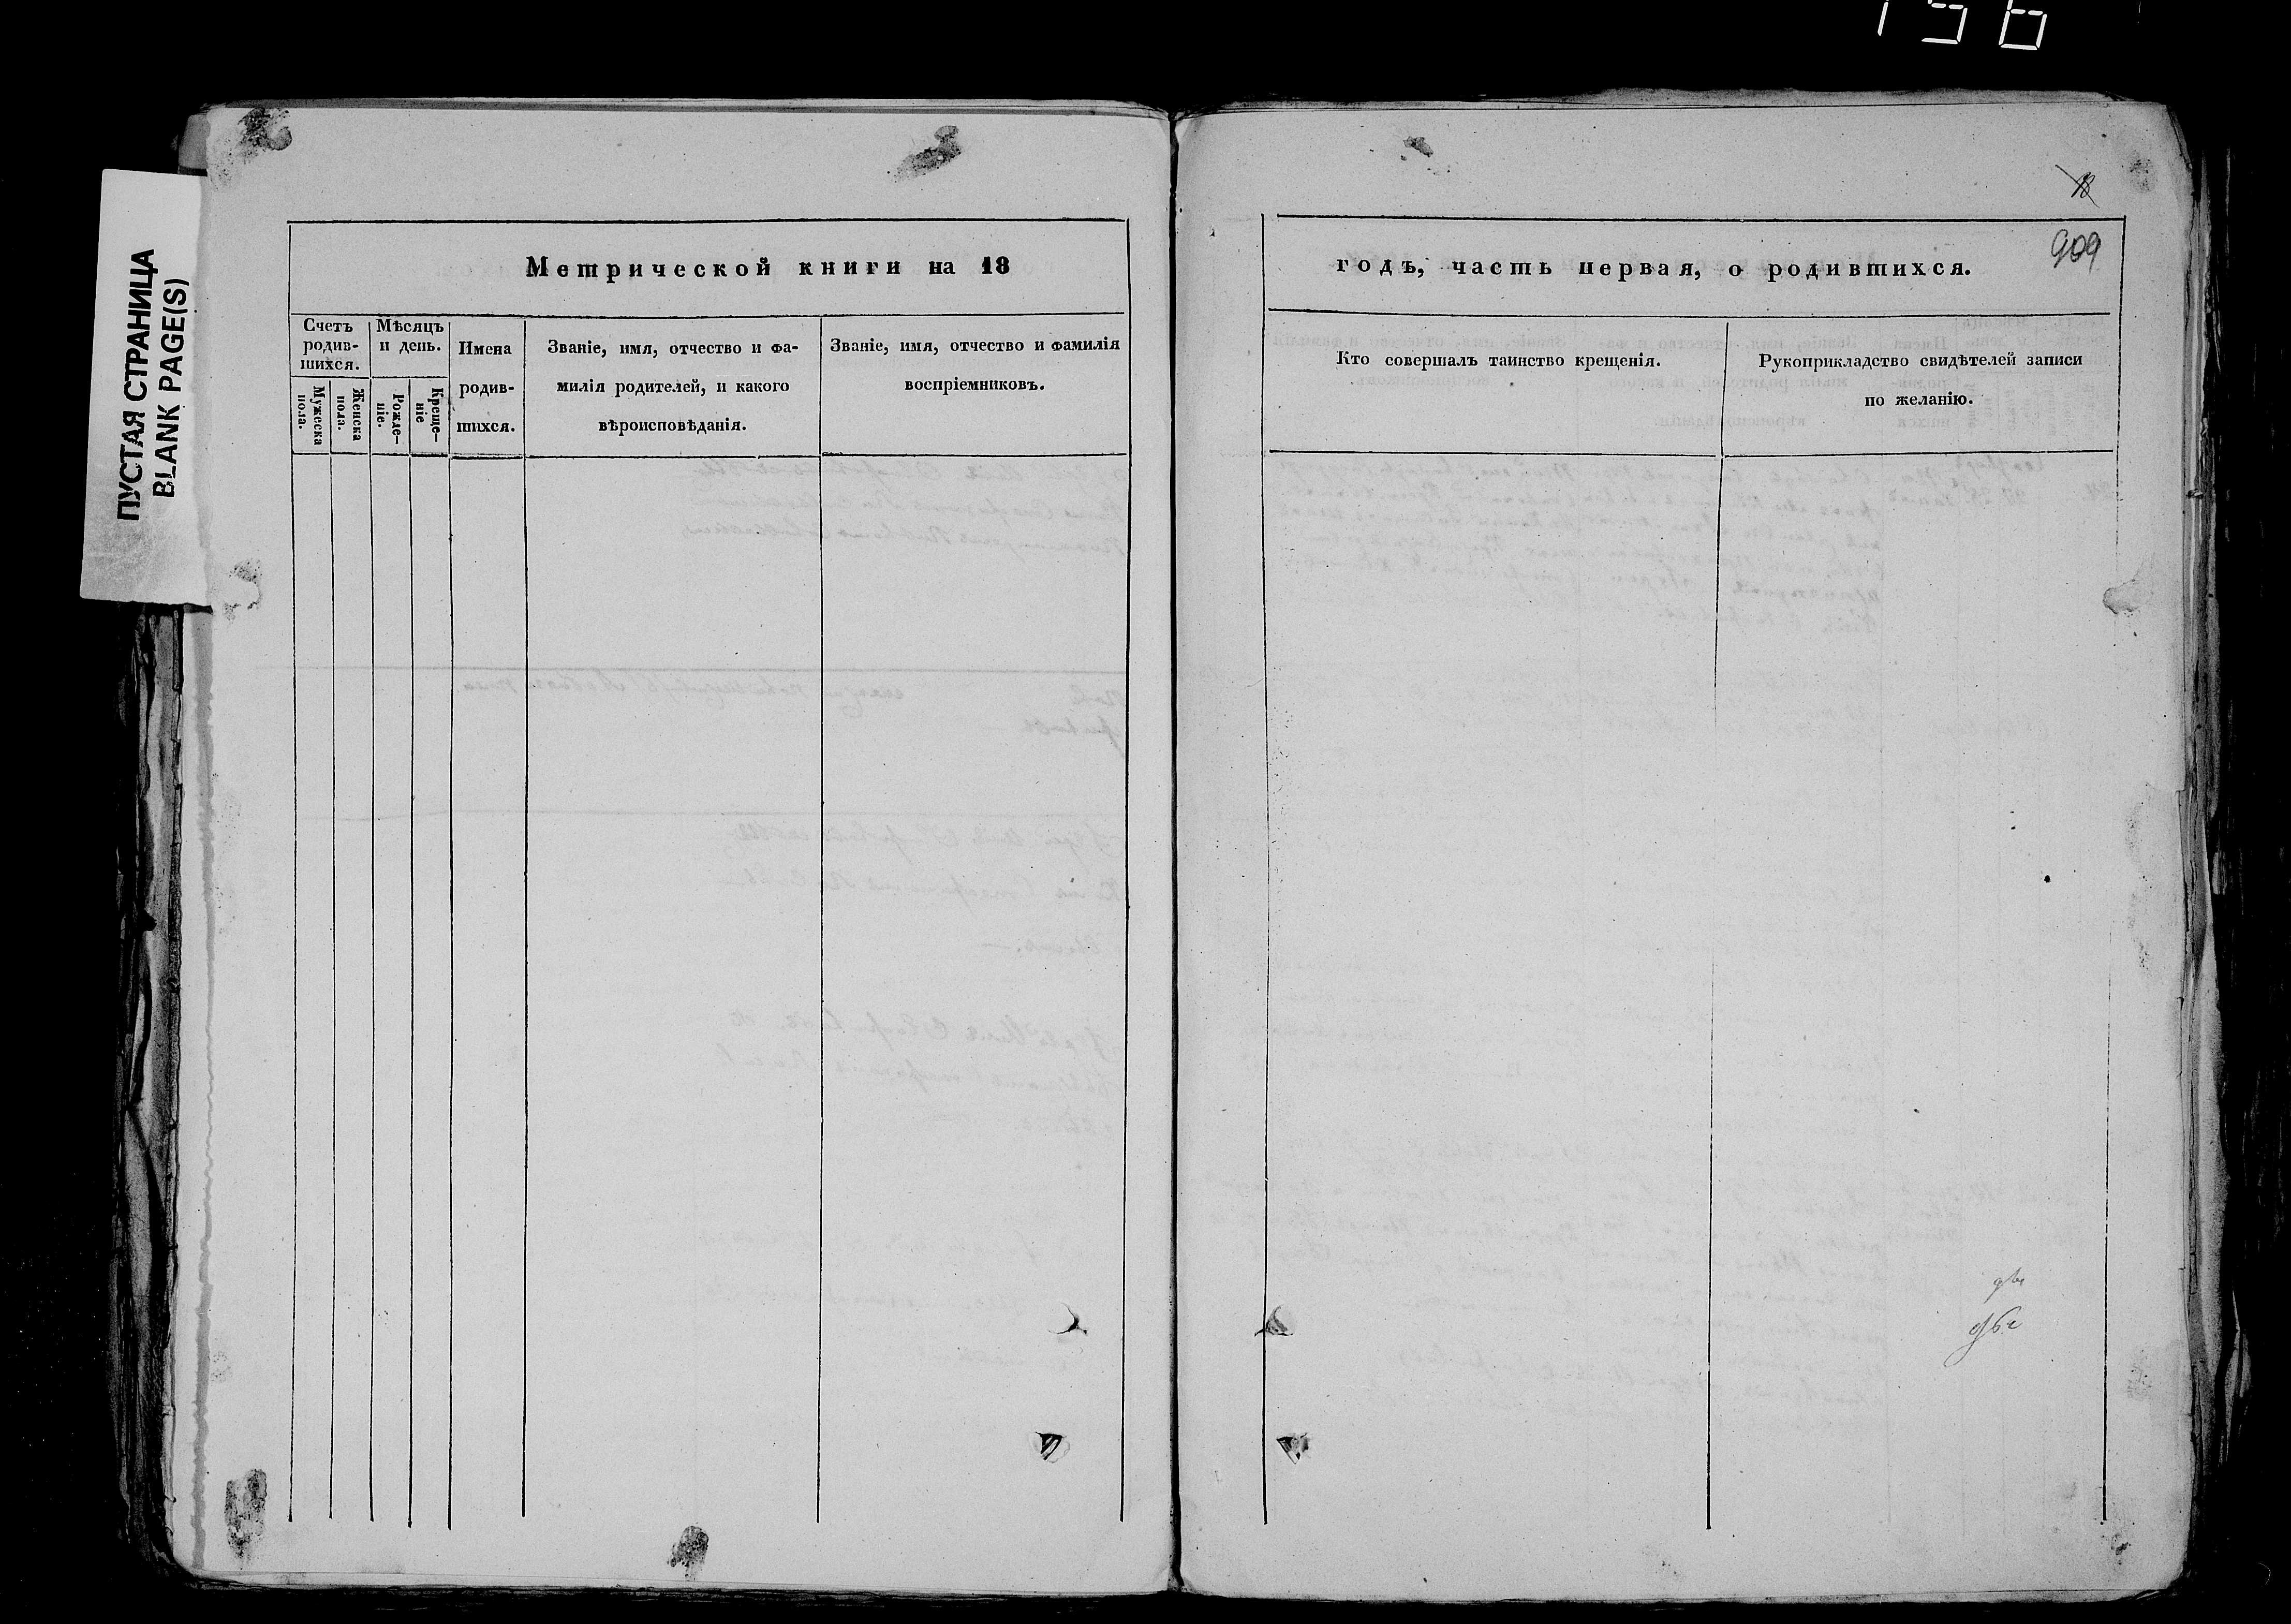 156
ПУСТАЯ СТРАНИЦА
BLANK PAGE(S)
Метрической книги на 18
Счетъ
родив-
шихся.
Мужеска
пола.
Женска
пола.
Мѣсяцъ
и день.
Рожде-
ніе.
Креще-
ніе
Имена
родив-
шихся.
Званіе, имя, отчество и фа-
милія родителей, и какого
вѣроисповѣданія.
Званіе, имя, отчество и фамилія
воспріемниковъ.
18
909
годъ, часть первая, о родившихся.
Кто совершалъ таинство крещенія.
Рукоприкладство свидѣтелей записи
по желанію.